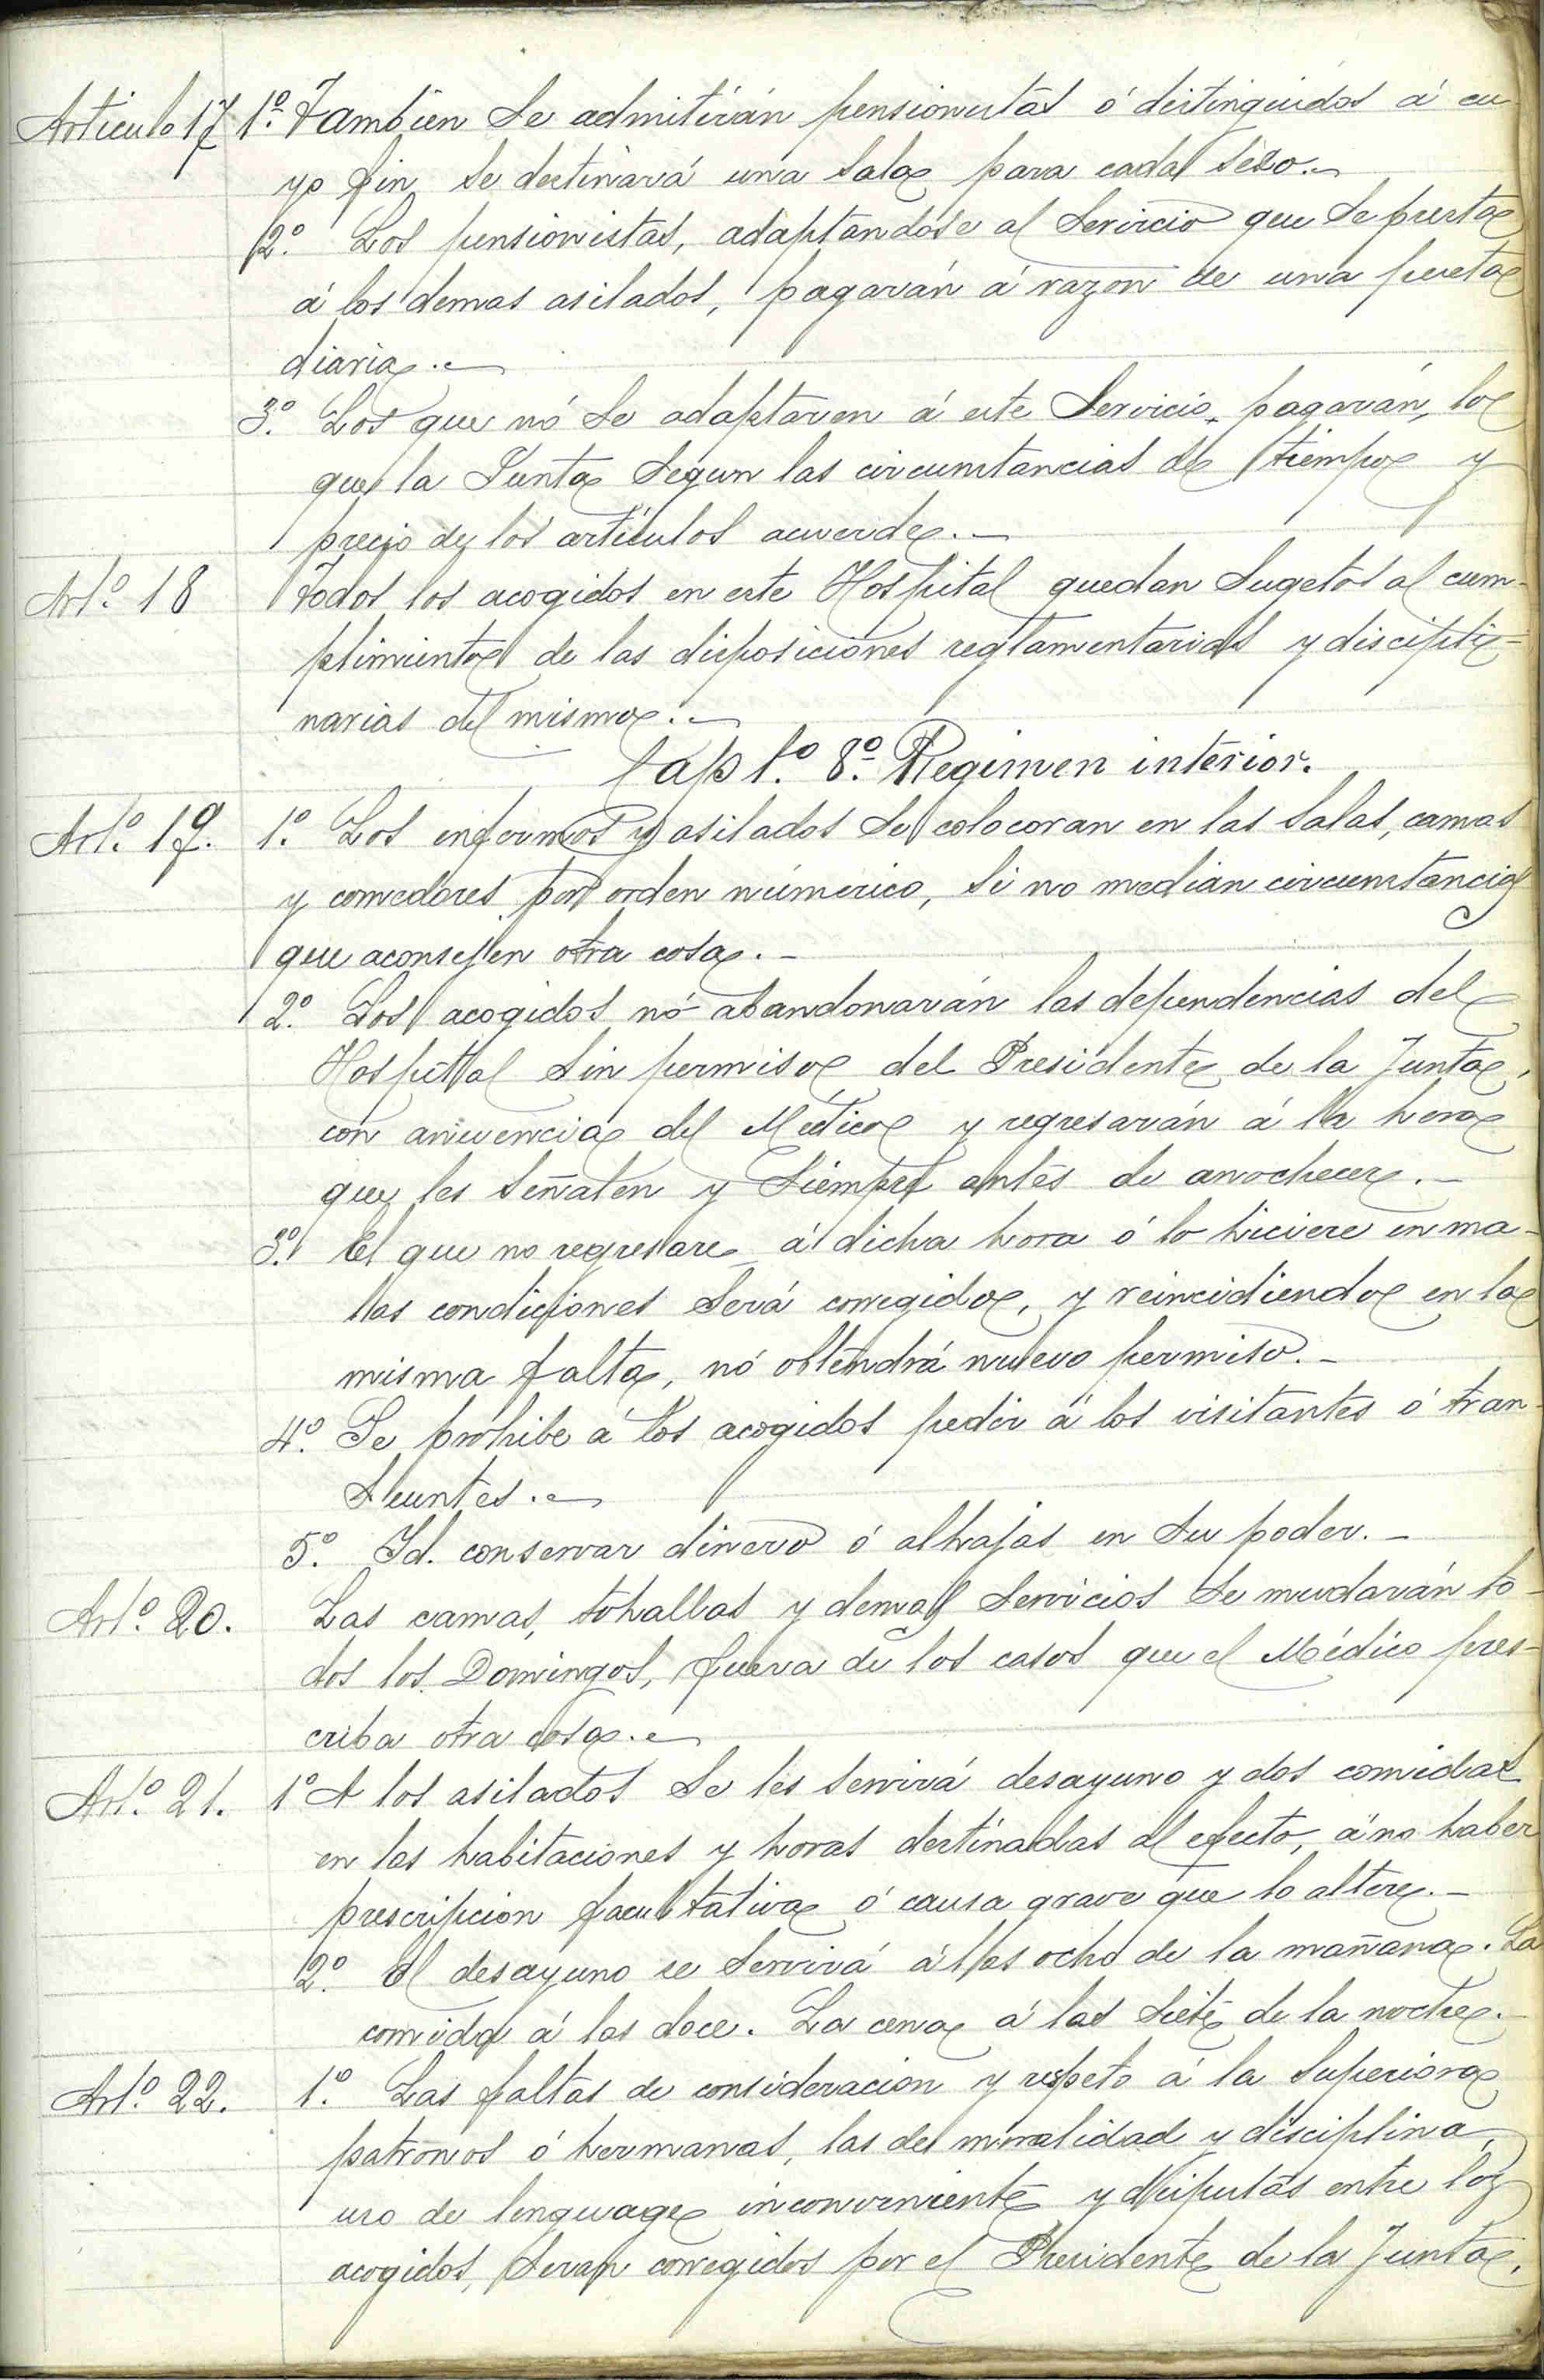 Articulo 17 1º. Tambien se admitirán pensionistas ó distinguidos á cu
yo fin se destinará una sala para cada sexo.
2º. Los pensionistas, adaptandose al servicio que se presta
á los demas asilados, pagarán á razon de una peseta
diaria.
3º. Los que nó se adaptaren á este servicio, pagarán, lo
que la Junta segun las circumstancias de tiempo y
precio de los artículos acuerde.
Artº. 18 Todos los acogidos en este Hospital quedan sugetos al cum-
plimiento de las disposiciones reglamentarias y discipli=
narias del mismo.
Capt.º 8º. Regimen interior.
Artº. 19. 1º. Los enfermos y asilados se colocoran en las salas, camas
y comedores por orden númerico, si no median circumstancias
que aconsejen otra cosa.
2º. Los acogidos nó abandonarán las dependencias del
Hospital sin permiso del Presidente de la Junta,
con anuencia del Médico y regresarán á la hora
que les señalen y siempre antes de anochecer.
3º. El que no regresare á dicha hora ó lo hiciere en ma-
las condiciones será corregido, y reincidiendo en la
misma falta, nó obtendrá nuevo permiso.
4º. Se prohibe á los acogidos pedir á los visitantes ó tran-
seuntes.
5º. Id. conservar dinero ó alhajas en su poder.
Artº. 20. Las camas, tohallas y demas servicios se mudarán to-
dos los Domingos, fuera de los casos que el Médico pres-
criba otra cosa.
Artº. 21. 1º A los asilados se les servirá desayuno y dos comidas
en las habitaciones y horas destinadas al efecto, á no haber
prescripcion facultativa ó causa grave que lo altere.
2º. El desayuno se servirá á las ocho de la mañana. La
comida á las doce. La cena á las siete de la noche.
Artº. 22. 1º. Las faltas de consideracion y respeto á la Superiora
patronos ó hermanas, las de moralidad y disciplina,
uso de lenguage inconveniente y disputas entre los
acogidos, seran corregidos por el Presidente de la Junta.